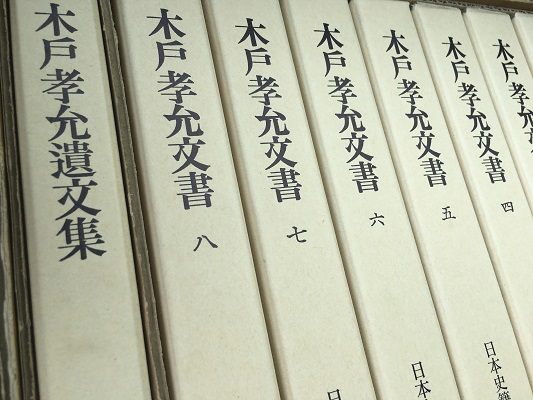 木戶孝允遺文集
木戶孝允文書 八
木戶孝允文書 七
日
木戶孝允文書 六
日本
木戶孝允文書 五
日本史籍
木戶孝允文書 四